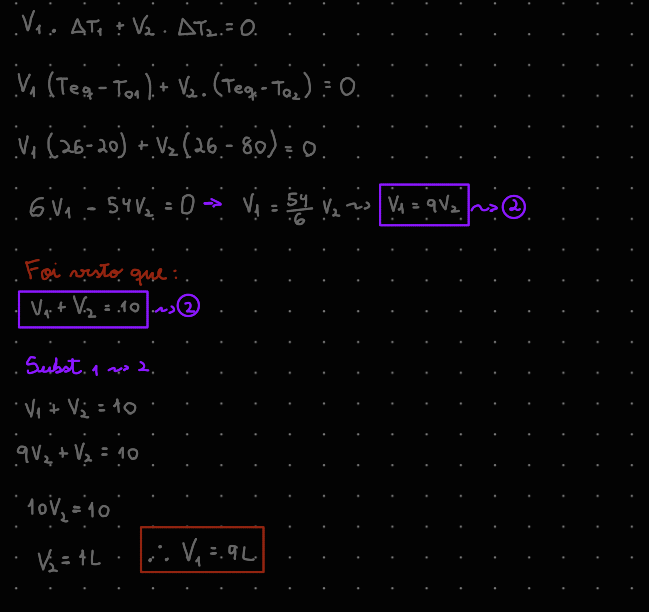 V₁ . ΔT₁ + V₂ . ΔT₂ = 0
V₁ (Teq - T₀₁) + V₂ . (Teq - T₀₂) = 0
V₁ (26-20) + V₂ (26 - 80) = 0
6V₁ - 54V₂ = 0 → V₁ = 54/6 V₂ ~> V₁ = 9V₂ ~> ②
Foi visto que:
V₁ + V₂ = 10 ~> ②
Subst. 1 ~> 2
V₁ + V₂ = 10
9V₂ + V₂ = 10
10V₂ = 10
V₂ = 1L ∴ V₁ = 9L